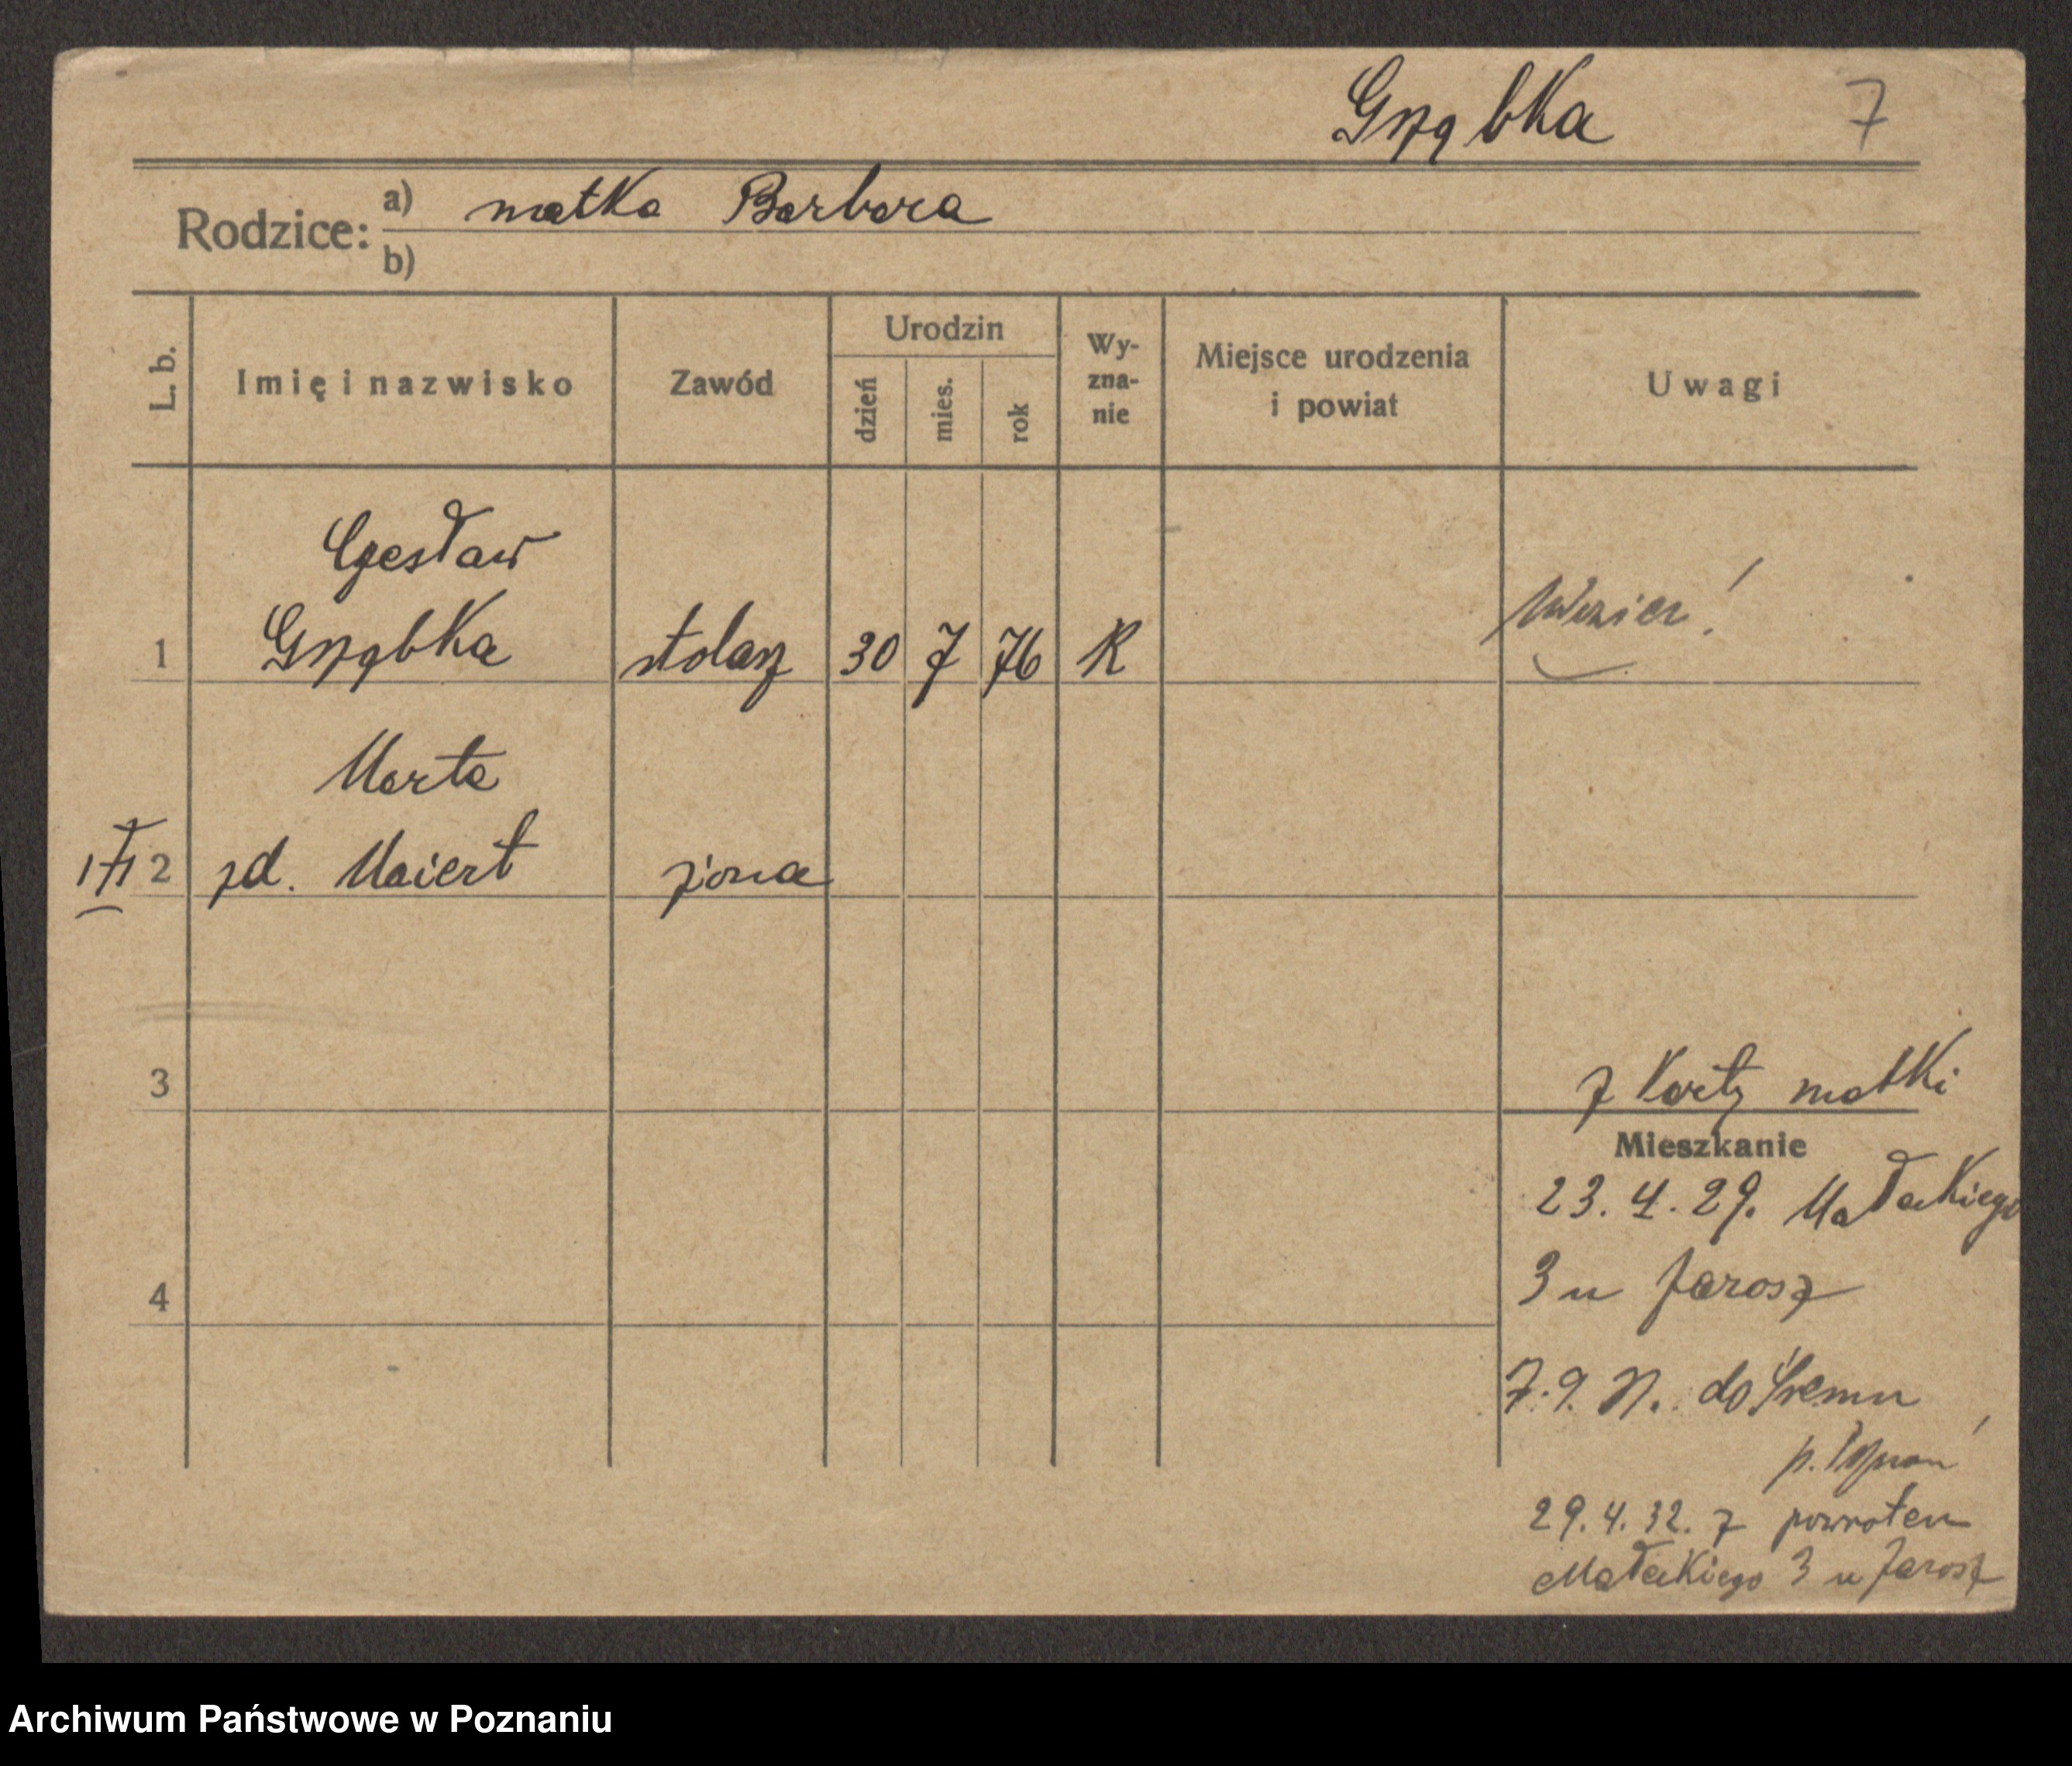 Grząbka 7
Rodzice: a) matka Barbara
b)
L. b. Imię i nazwisko Zawód Urodzin dzień mies. rok Wy-zna-nie Miejsce urodzenia i powiat Uwagi
Czesław
1 Grząbka stolarz 30 7 76 K
Marta
2 zd. Maiert żona
3
z Karty matki
Mieszkanie
23. 4. 29. Małeckiego
3 u Jarosz
4
7. 9. do Śremu
29. 4. 32. z powrotem
Małeckiego 3 u Jarosz
Archiwum Państwowe w Poznaniu